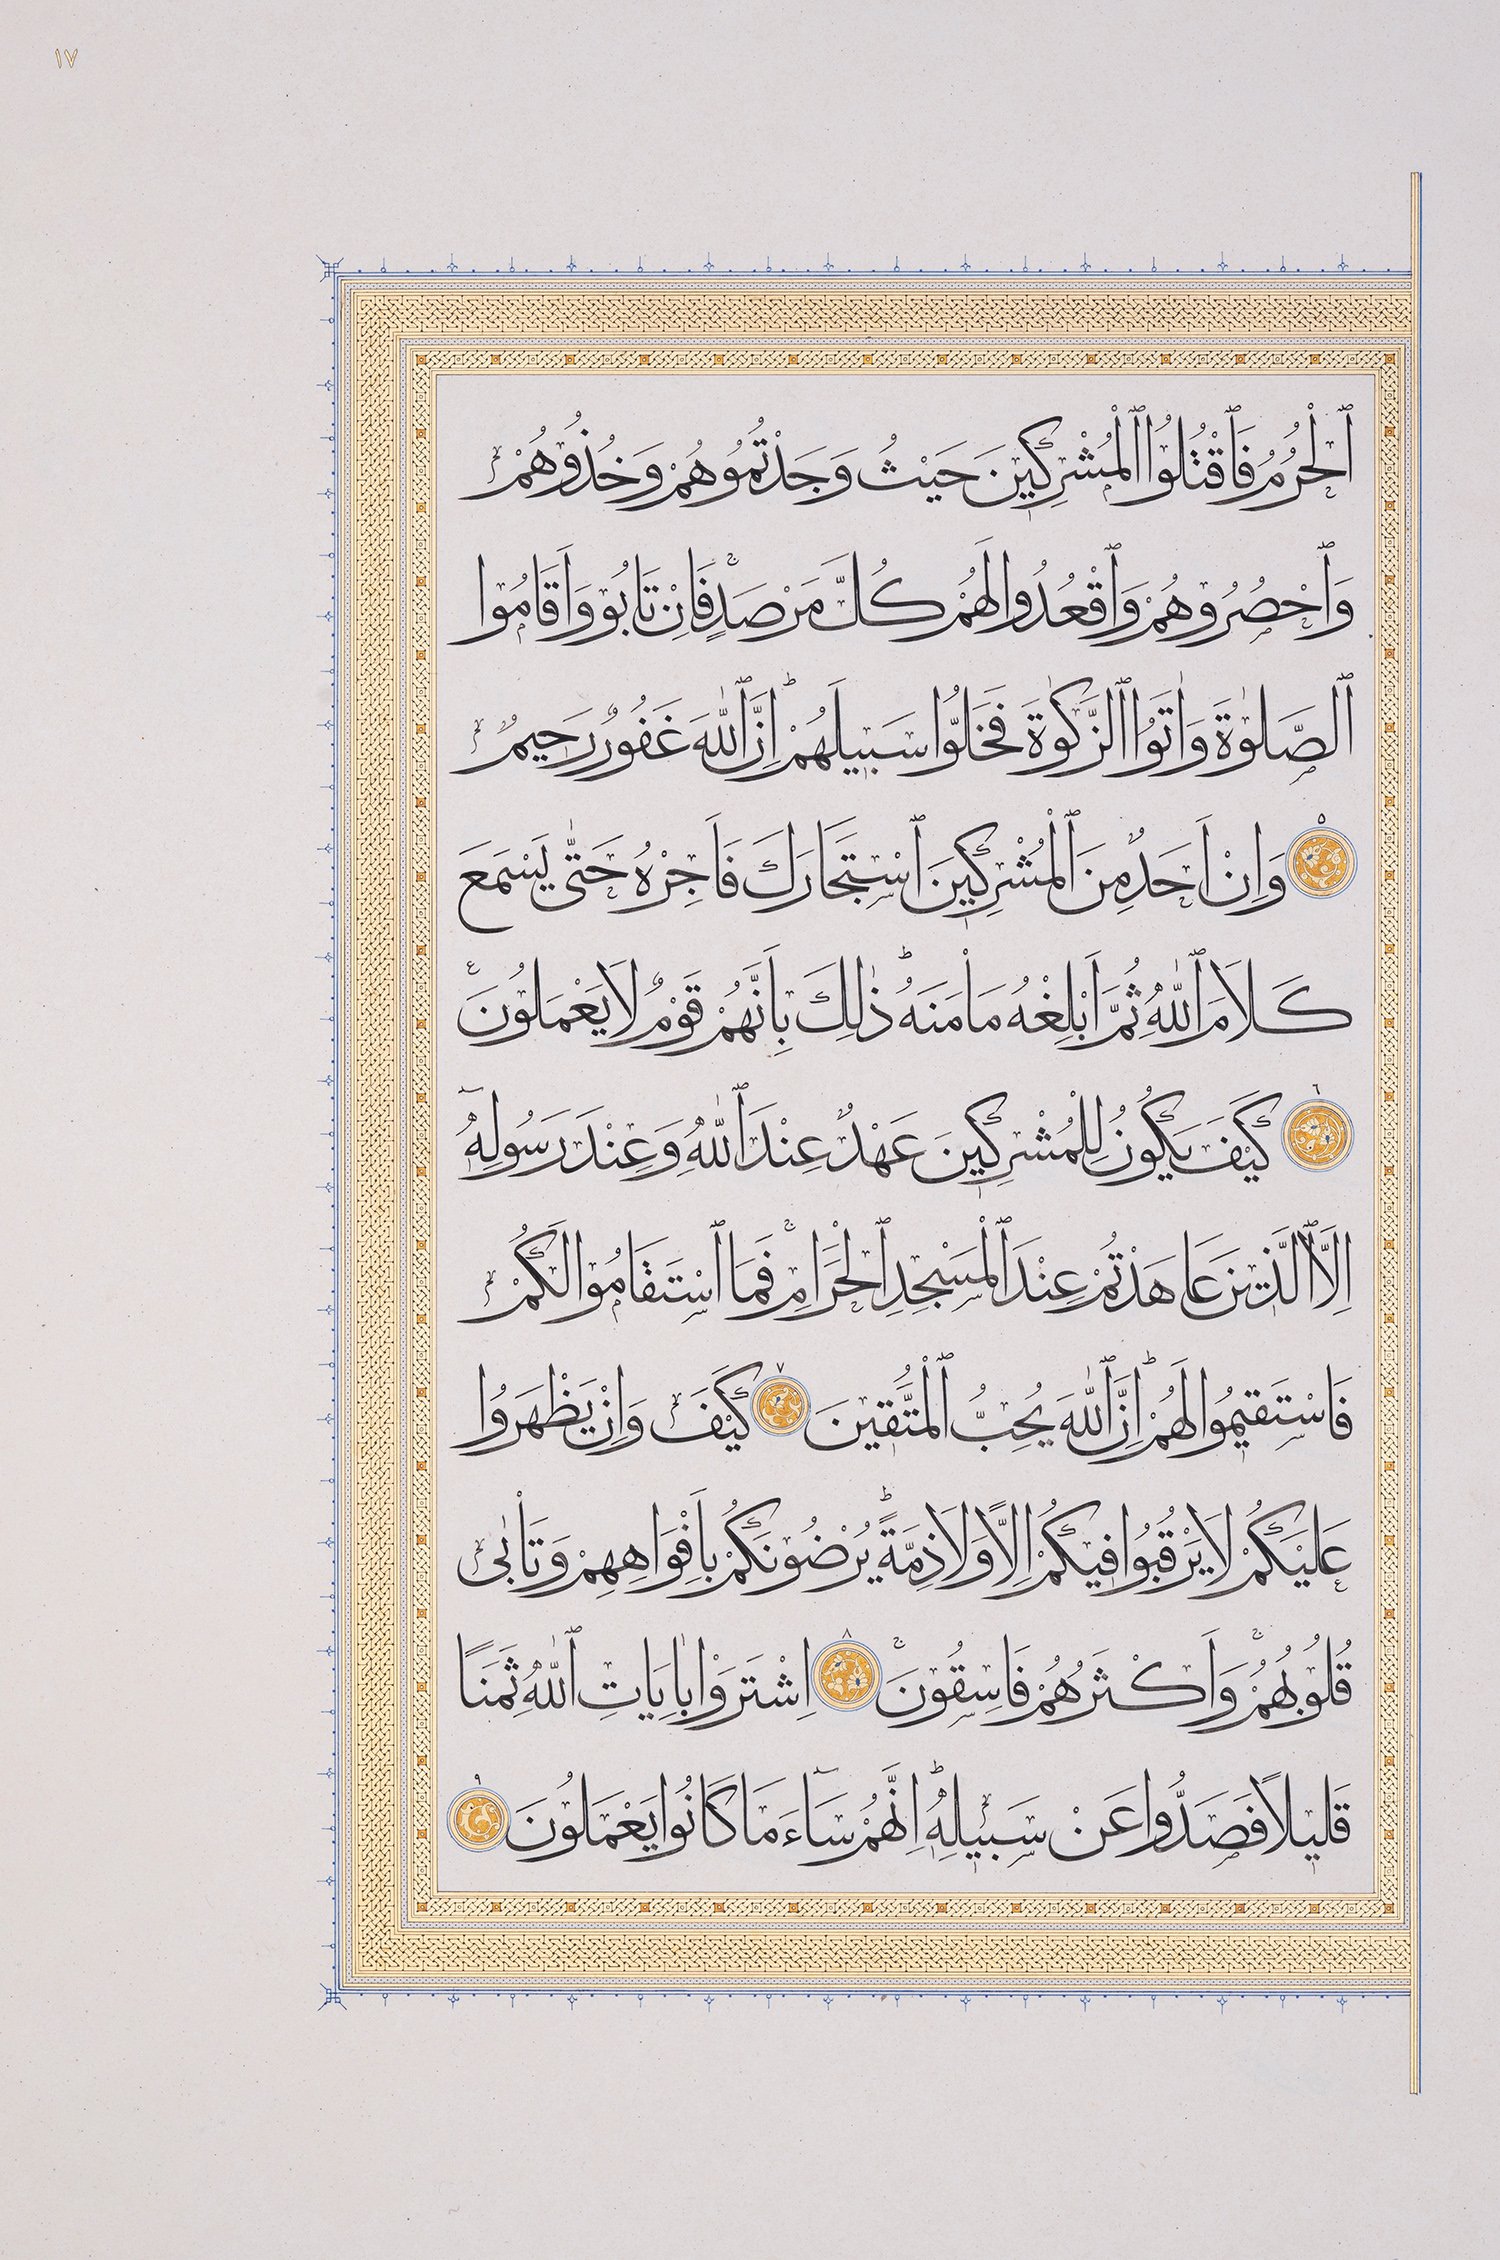 ١٧
ٱلْحُرُمُ فَٱقْتُلُوا ٱلْمُشْرِكِينَ حَيْثُ وَجَدْتُمُوهُمْ وَخُذُوهُمْ
وَٱحْصُرُوهُمْ وَٱقْعُدُوا لَهُمْ كُلَّ مَرْصَدٍۚ فَاِنْ تَابُو وَاَقَامُوا
ٱلصَّلٰوةَ وَاٰتَوُا ٱلزَّكٰوةَ فَخَلُّوا سَبِيلَهُمْۜ اِنَّ ٱللّٰهَ غَفُورٌ رَحِيمٌ
٥ وَاِنْ اَحَدٌ مِنَ ٱلْمُشْرِكِينَ ٱسْتَجَارَكَ فَاَجِرْهُ حَتّٰى يَسْمَعَ
كَلَامَ ٱللّٰهِ ثُمَّ اَبْلِغْهُ مَاْمَنَهُۜ ذٰلِكَ بِاَنَّهُمْ قَوْمٌ لَا يَعْمَلُونَ ع
٦ كَيْفَ يَكُونُ لِلْمُشْرِكِينَ عَهْدٌ عِنْدَ ٱللّٰهِ وَعِنْدَ رَسُولِهِٓ
اِلَّا ٱلَّذِينَ عَاهَدْتُمْ عِنْدَ ٱلْمَسْجِدِ ٱلْحَرَامِۚ فَمَا ٱسْتَقَامُوا لَكُمْ
فَاسْتَقِيمُوا لَهُمْۜ اِنَّ ٱللّٰهَ يُحِبُّ ٱلْمُتَّقِينَ ٧ كَيْفَ وَاِنْ يَظْهَرُوا
عَلَيْكُمْ لَا يَرْقُبُوا فِيكُمْ اِلًّا وَلَا ذِمَّةًۜ يُرْضُونَكُمْ بِاَفْوَاهِهِمْ وَتَاْبٰى
قُلُوبُهُمْۚ وَاَكْثَرُهُمْ فَاسِقُونَۚ ٨ اِشْتَرَوْا بِاٰيَاتِ ٱللّٰهِ ثَمَنًا
قَلِيلًا فَصَدُّوا عَنْ سَبِيلِهِۜ اِنَّهُمْ سَٓاءَ مَا كَانُوا يَعْمَلُونَ ٩